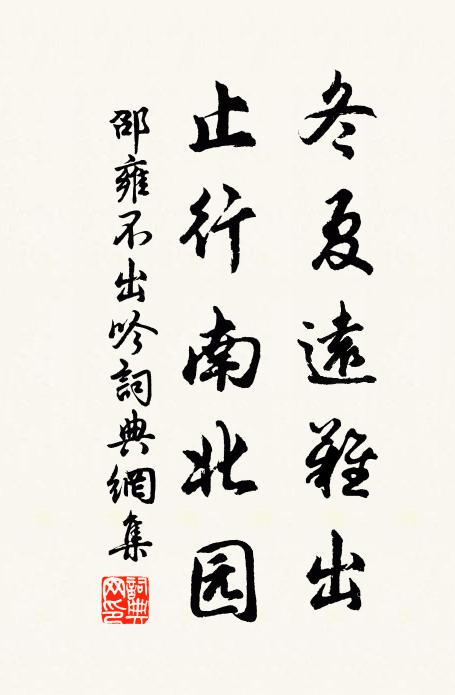 冬夏遠難出
止行南北园
邵雍不出吟詞典網集
詞典网印